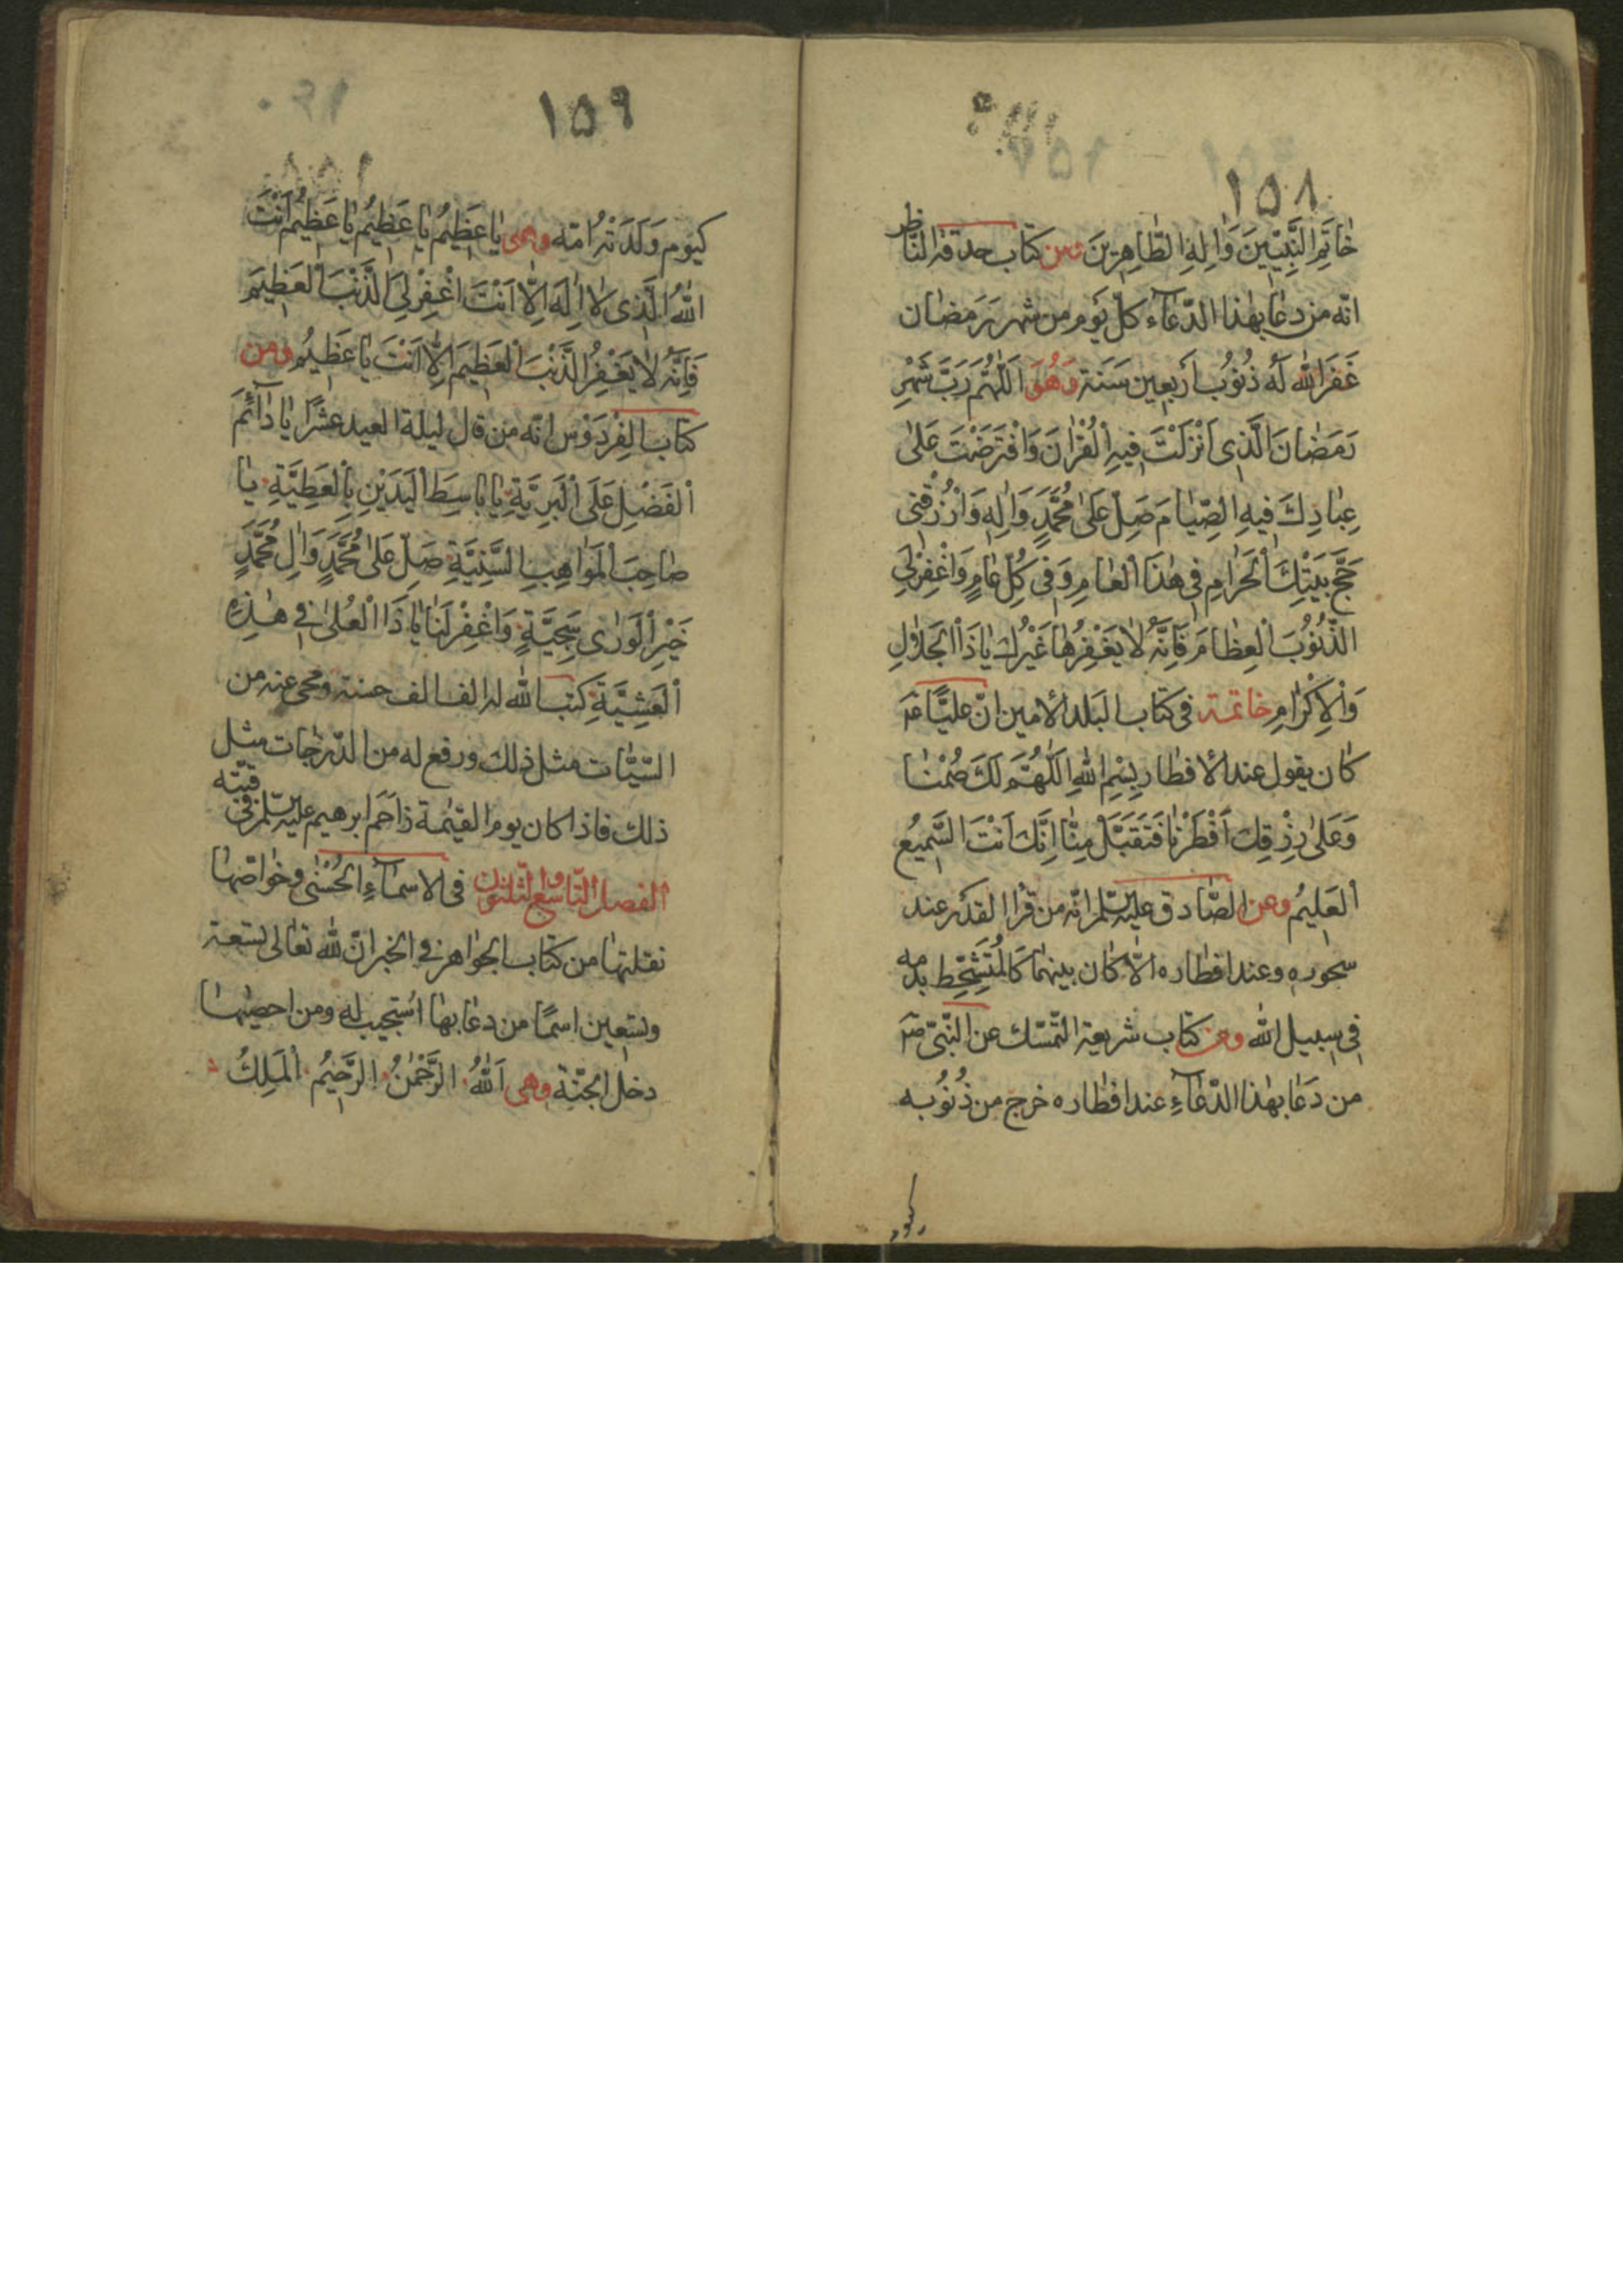 ١٥٨
خاتَمِ النَّبِيّينَ وَالِهِ الطّاهِرينَ ومن كتاب حدقة الناظر
انّه من دعا بهذا الدّعاء كلّ يَوم من شهر رَمَضان
غَفَرَ الله لَه ذُنُوبُ أربعين سَنَة وَهُوَ اَللّهُمَّ رَبَّ شَهْرِ
رَمَضانَ الَّذى اَنْزَلْتَ فيهِ الْقُرْانَ وَافْتَرَضْتَ عَلى
عِبادِكَ فيهِ الصِّيامَ صَلِّ عَلى مُحَمَّدٍ وَالِهِ وَارْزُقْنى
حَجَّ بَيْتِكَ الْحَرامِ فى هذَا الْعامِ وَفى كُلِّ عامٍ وَاغْفِرْ لِىَ
الذُّنُوبَ الْعِظامَ فَاِنَّهُ لا يَغْفِرُها غَيْرُكَ يا ذَا الْجَلالِ
وَالْاِكْرامِ خاتمة فى كتاب البَلد الأمين انّ عليًّا ع
كان يقول عند الأفطار بِسْمِ اللهِ اَللّهُمَّ لَكَ صُمْنا
وَعَلى رِزْقِكَ اَفْطَرْنا فَتَقَبَّلْ مِنّا اِنَّكَ اَنْتَ السَّميعُ
الْعَليمُ وعن الصّادق عليه السّلم انّه من قرأ القدر عند
سحوره وعند افطاره الّا كان بينهما كَالْمُتَشَحِّطِ بدمه
فى سبيل الله ومن كتاب شريعة التّمسّك عن النّبىّ ص
من دَعا بهذا الدّعاءِ عند افطاره خرج من ذُنُوبه
كيوم
١٥٩
كيَوم وَلَدَتْهُ اُمّه وهى يا عَظيمُ يا عَظيمُ يا عَظيمُ اَنْتَ
اللهُ الَّذى لا اِلهَ اِلّا اَنْتَ اغْفِرْ لِىَ الذَّنْبَ الْعَظيمَ
فَاِنَّهُ لا يَغْفِرُ الذَّنْبَ الْعَظيمَ اِلّا اَنْتَ يا عَظيمُ ومن
كتاب الفِرْدَوْس انّه من قال ليلة العيد عشرًا يا دائِمَ
الْفَضْلِ عَلَى الْبَرِيَّةِ يا باسِطَ الْيَدَيْنِ بِالْعَطِيَّةِ يا
صاحِبَ الْمَواهِبِ السَّنِيَّةِ صَلِّ عَلى مُحَمَّدٍ وَالِ مُحَمَّدٍ
خَيْرِ الْوَرى سَجِيَّةٍ وَاغْفِرْ لَنا يا ذَا الْعُلى فى هذِهِ
الْعَشِيَّةِ كتب الله له الف الف حسنة ومحى عنه من
السّيّئات مثل ذلك ورفع له من الدّرجات مثل
ذلك فاذا كان يوم القيمة زاحَم ابرهيم عليه السّلم فى قبّته
الفصل التّاسع والثلثون فى الاسماءِ الحُسْنى وخواصّها
نقلتها من كتاب الجواهر فى الخبر انّ لله تعالى تسعة
وتسعين اسمًا من دعا بها استُجيب له ومن احصيها
دخل الجنّة وهى اَللهُ الرَّحْمنُ الرَّحيمُ الْمَلِكُ